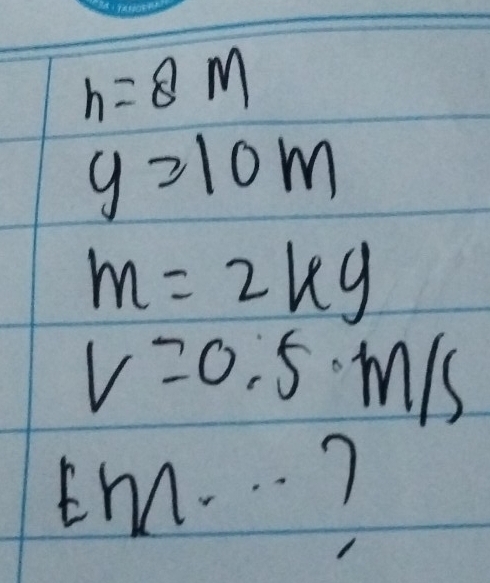 h = 8 M
g = 10 m
m = 2 kg
V = 0.5 . m/s
Em. ... ?